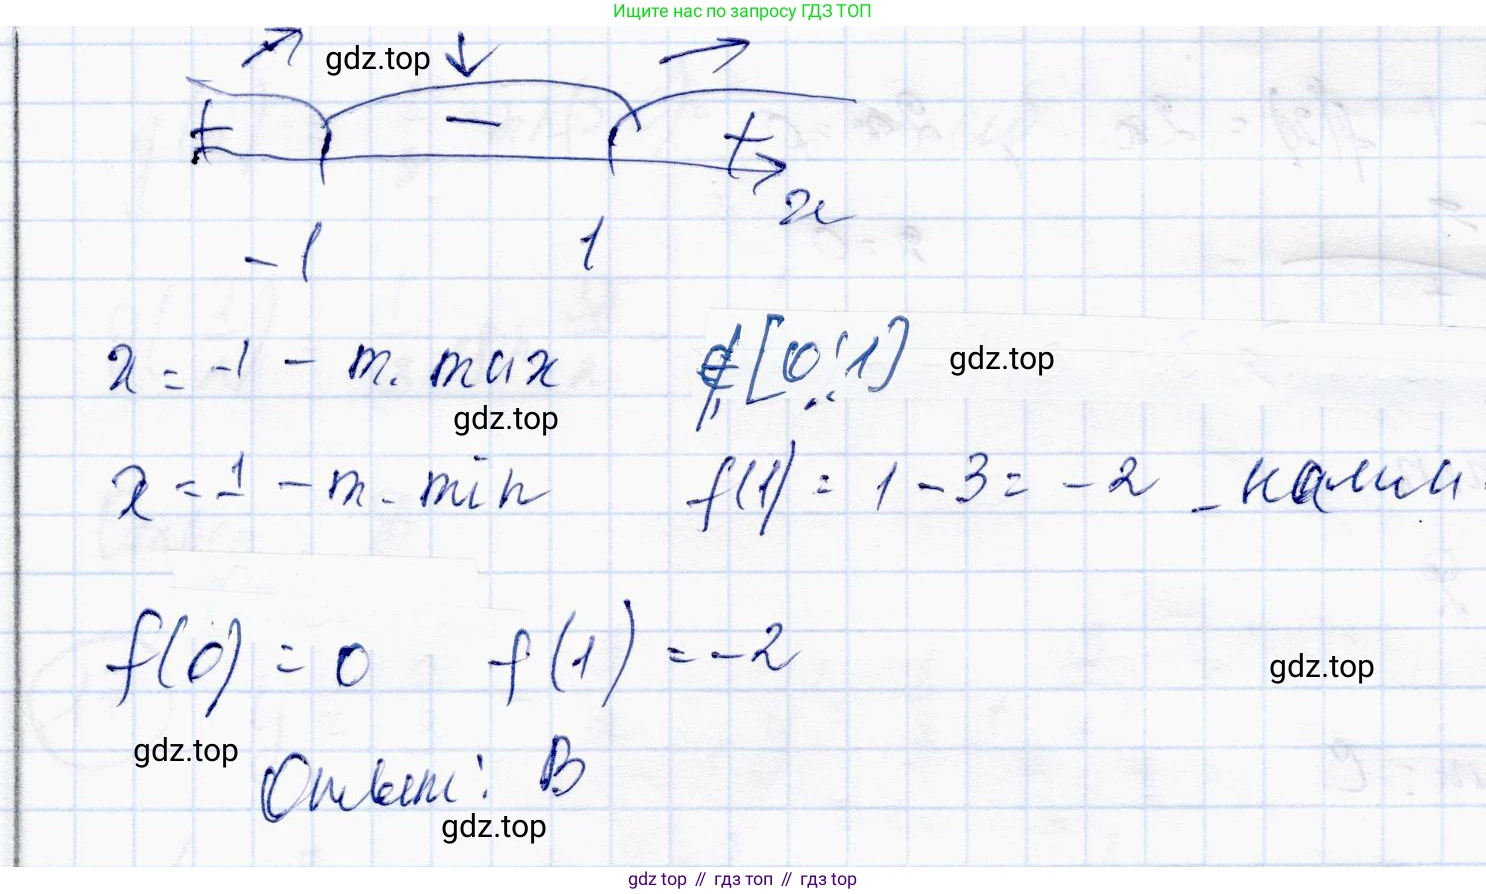 Ищите нас по запросу ГДЗ ТОП
gdz.top
+ − +
x
-1 1
x = -1 - т. max ∉ [0; 1] gdz.top
gdz.top
x = 1 - т. min f(1) = 1 - 3 = -2 - наим.
f(0) = 0 f(1) = -2
gdz.top
gdz.top
Ответ: В
gdz.top
gdz top // гдз топ // гдз top